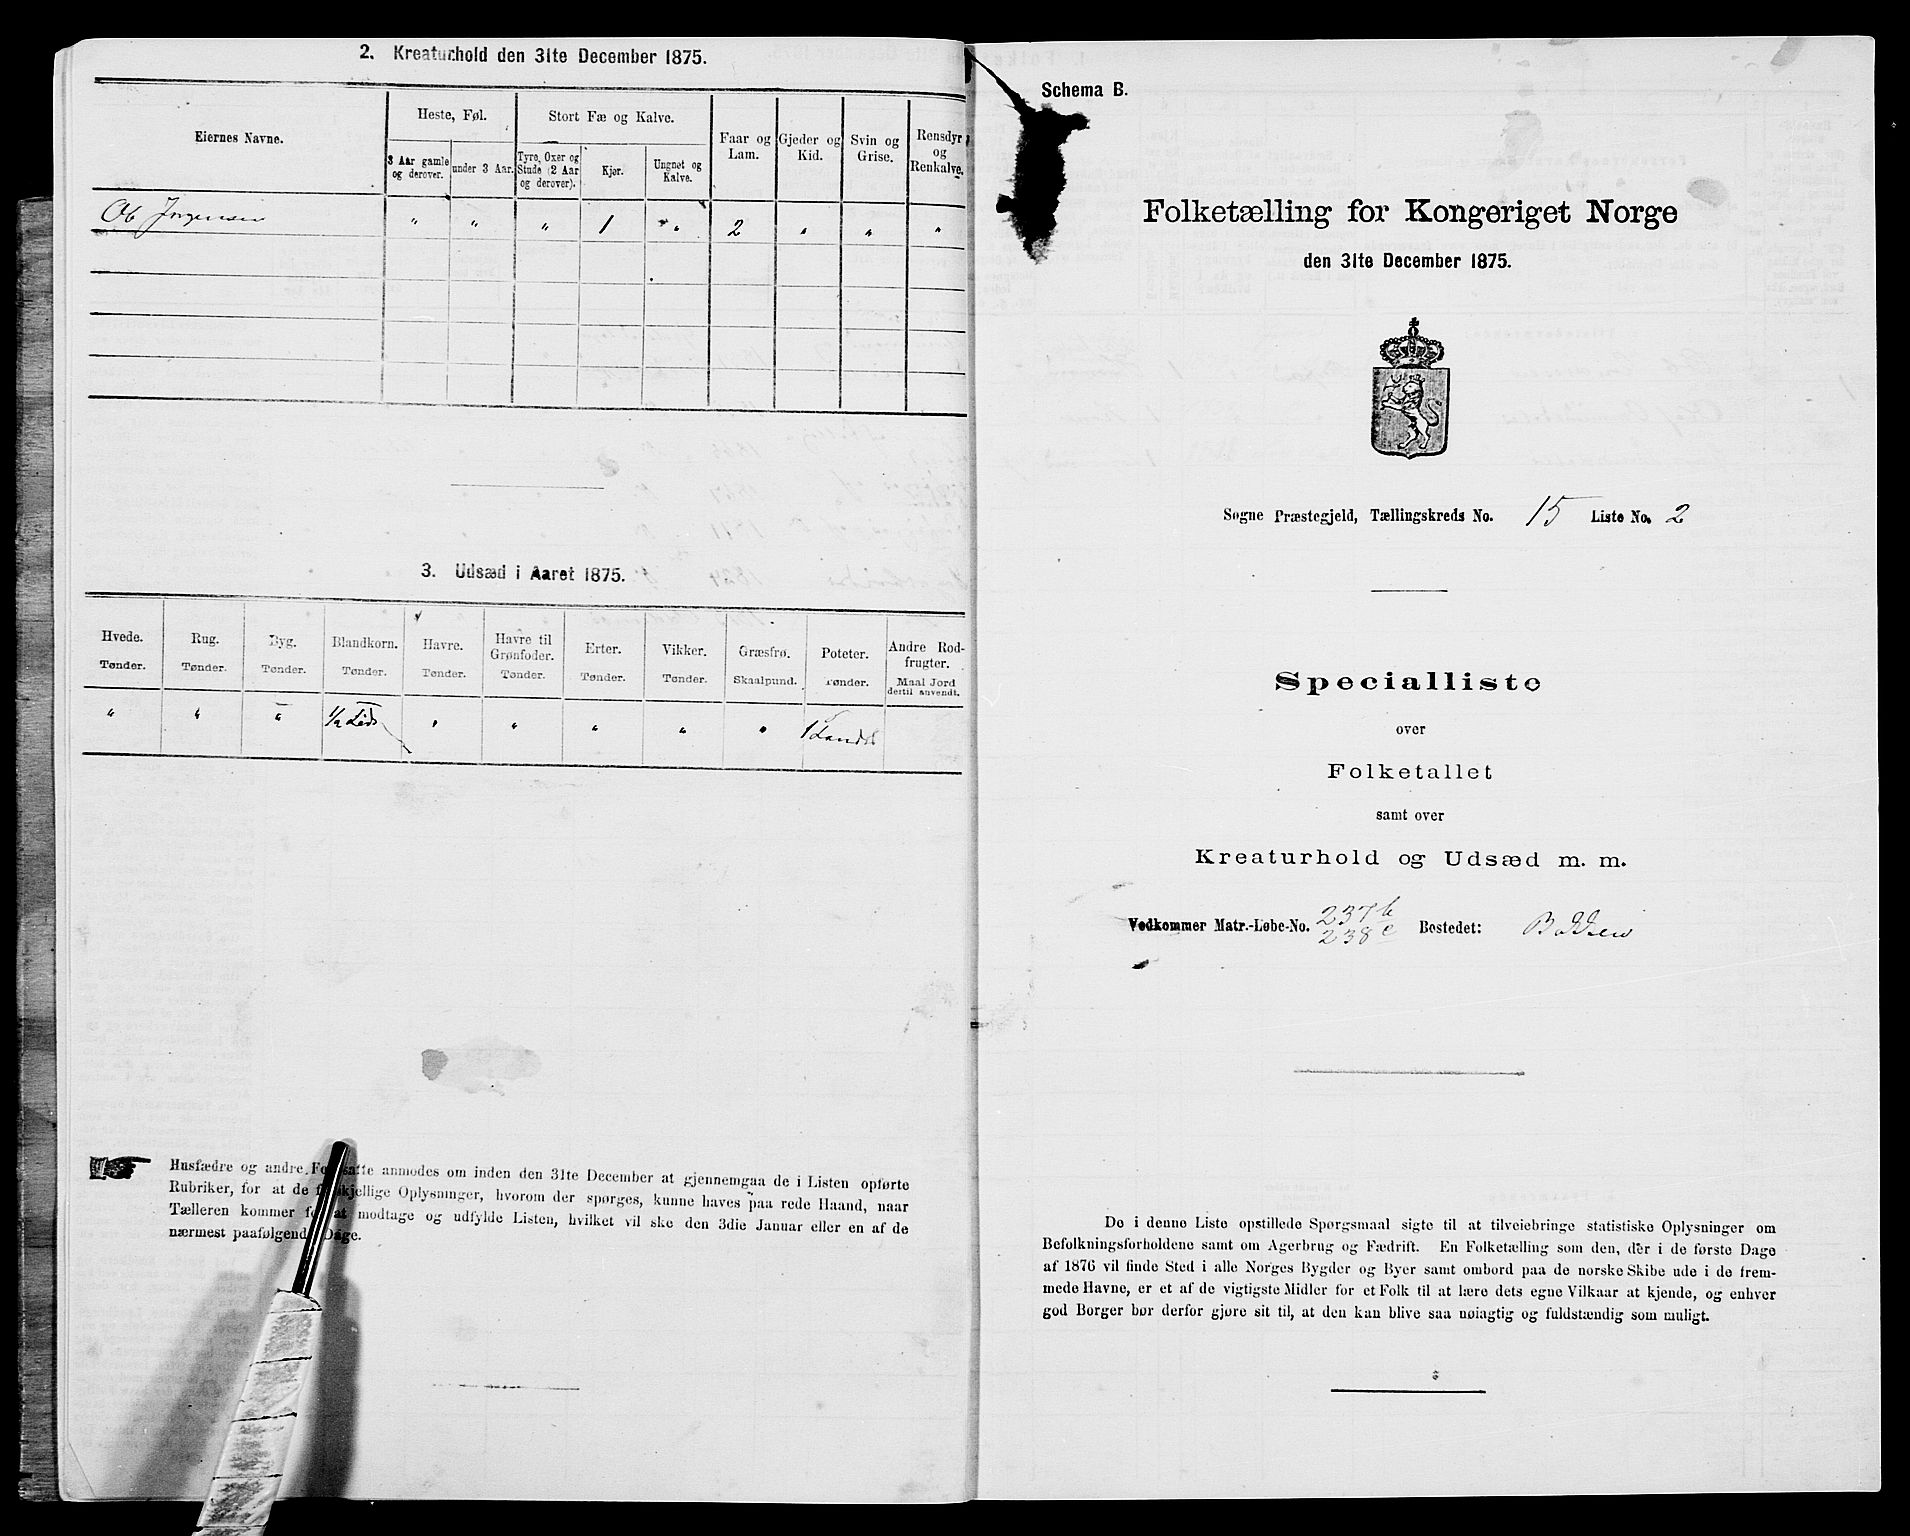 2. Kreaturhold den 31te December 1875.
Eiernes Navne.
Heste, Føl.
Stort Fæ og Kalve.
Faar og Lam.
Gjeder og Kid.
Svin og Grise.
Rensdyr og Renkalve.
3 Aar gamle og derover.
under 3 Aar.
Tyre, Oxer og Stude (2 Aar og derover).
Kjør.
Ungnøt og Kalve.
Jørgensen " " " 1 " 2 " " "
3. Udsæd i Aaret 1875.
Hvede. Rug. Byg. Blandkorn. Havre. Havre til Grønfoder. Erter. Vikker. Græsfrø. Poteter. Andre Rodfrugter.
Tønder. Tønder. Tønder. Tønder. Tønder. Tønder. Tønder. Tønder. Skaalpund. Tønder. Maal Jord dertil anvendt.
" " " 1/2 " " " " " 1
Husfædre og andre Foresatte anmodes om inden den 31te December at gjennemgaa de i Listen opførte
Rubriker, for at de forskjellige Oplysninger, hvorom der spørges, kunne haves paa rede Haand, naar
Tælleren kommer for at modtage og udfylde Listen, hvilket vil ske den 3die Januar eller en af de
nærmest paafølgende Dage.
Schema B.
Folketælling for Kongeriget Norge
den 31te December 1875.
Søgne Præstegjeld, Tællingskreds No. 15 Liste No. 2
Specialliste
over
Folketallet
samt over
Kreaturhold og Udsæd m. m.
Vedkommer Matr.-Løbe-No. 237 b
238 c Bostedet: Bakken
De i denne Liste opstillede Spørgsmaal sigte til at tilveiebringe statistiske Oplysninger om
Befolkningsforholdene samt om Agerbrug og Fædrift. En Folketælling som den, der i de første Dage
af 1876 vil finde Sted i alle Norges Bygder og Byer samt ombord paa de norske Skibe ude i de frem-
mede Havne, er et af de vigtigste Midler for et Folk til at lære dets egne Vilkaar at kjende, og enhver
god Borger bør derfor gjøre sit til, at den kan blive saa nøiagtig og fuldstændig som muligt.